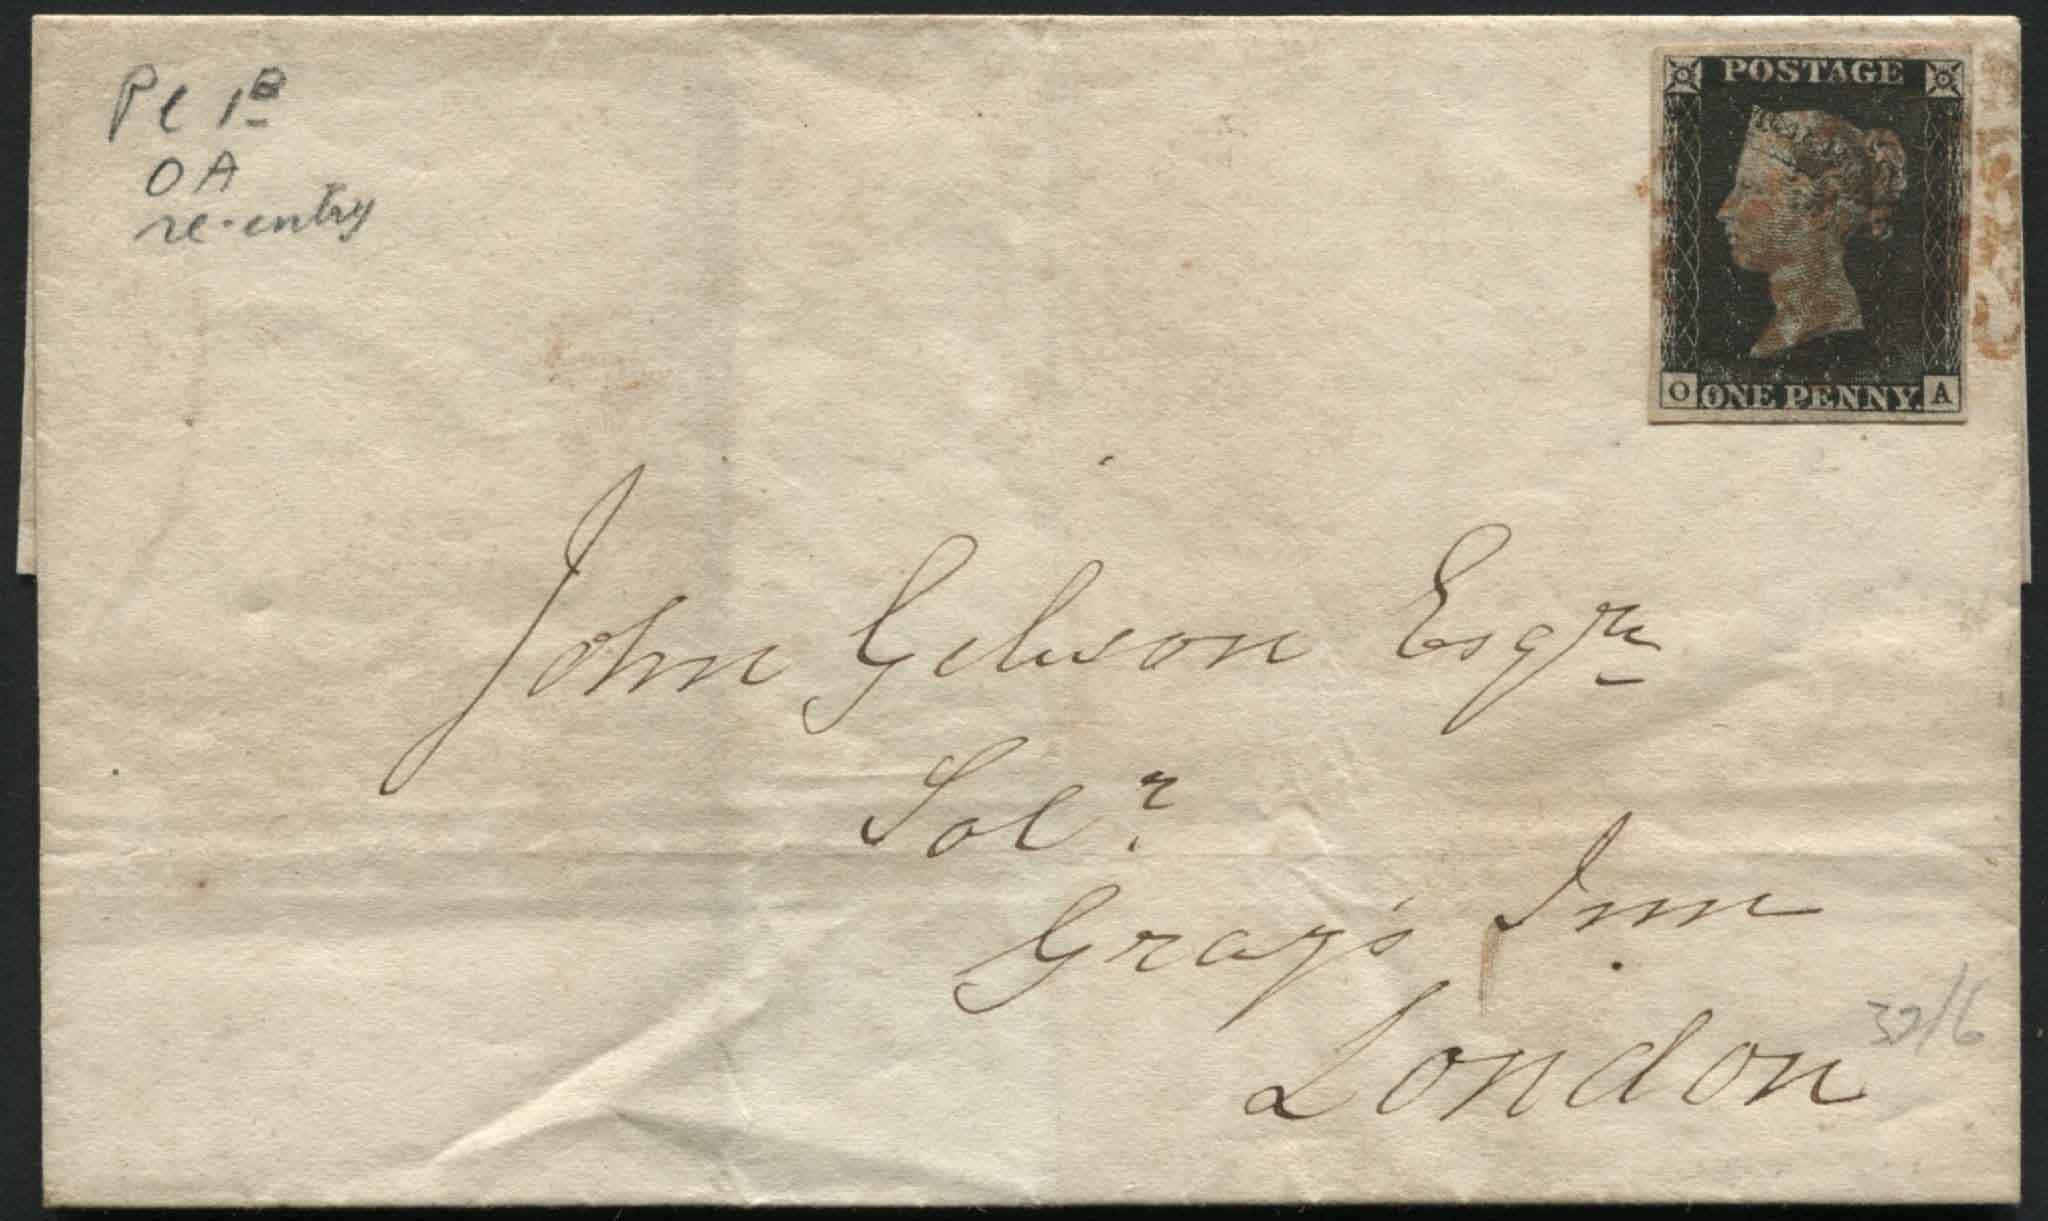 Pl 1B
OA
re-entry
POSTAGE
O ONE PENNY. A
John Gibson Esqre
Solr.
Gray's Inn
London